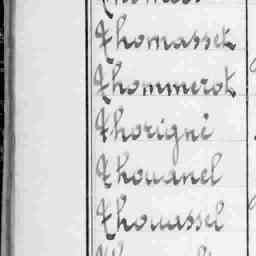 Thomasset
Thommerot
Thorigné
Thouanel
Thouassel